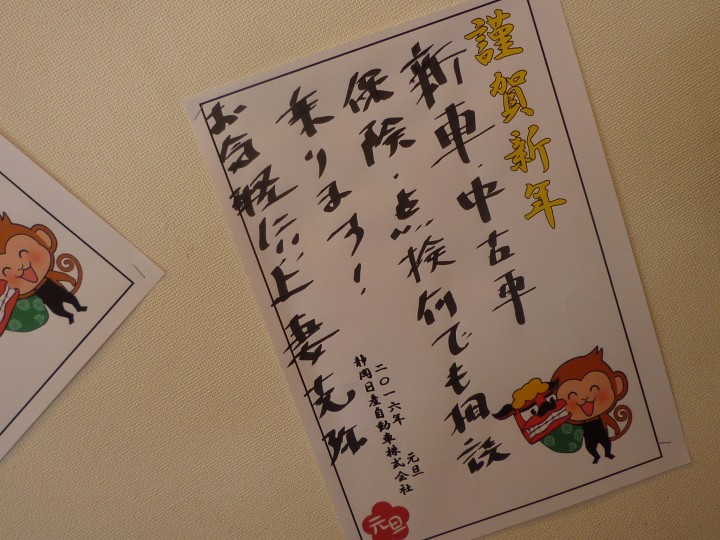 謹賀新年
新車・中古車
保険・点検何でも相談
乗ります!
お気軽に!上妻克弥
二〇一六年 元旦
静岡日産自動車株式会社
元旦